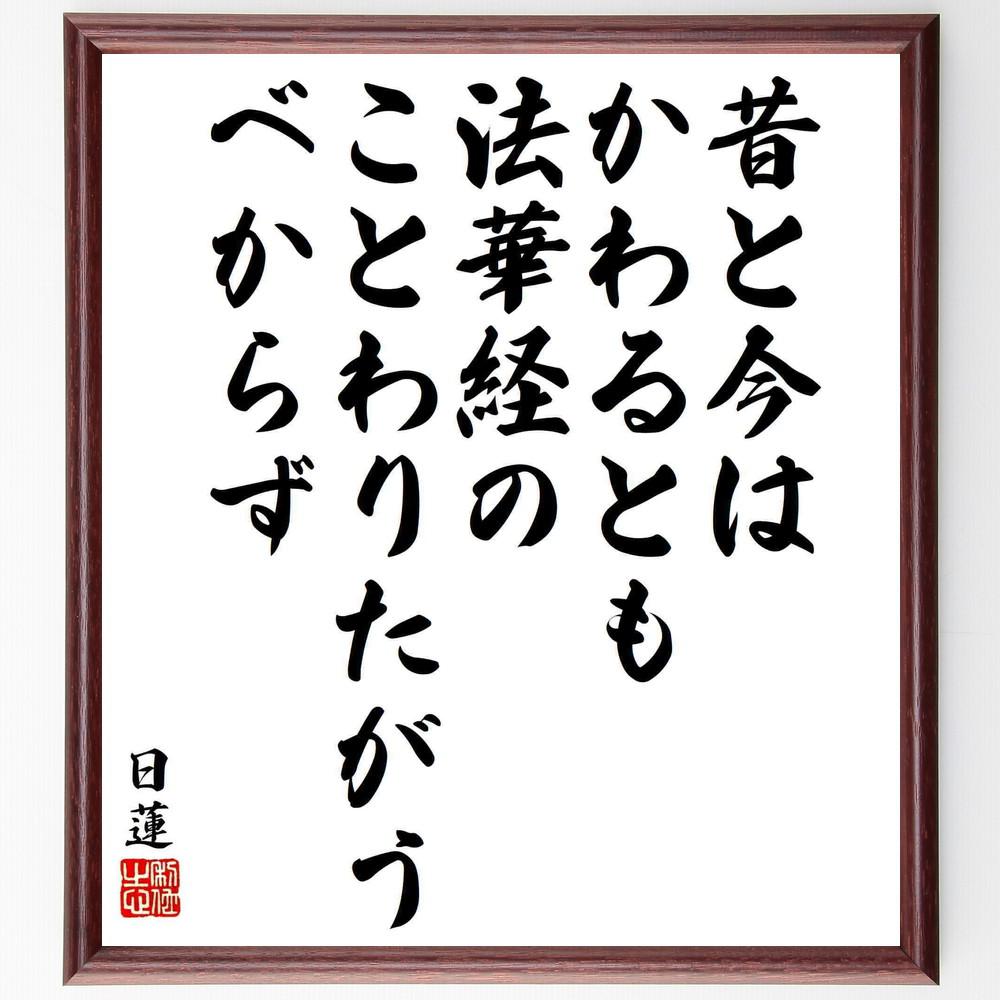 昔と今は
かわるとも
法華経の
ことわりたがう
べからず
日蓮